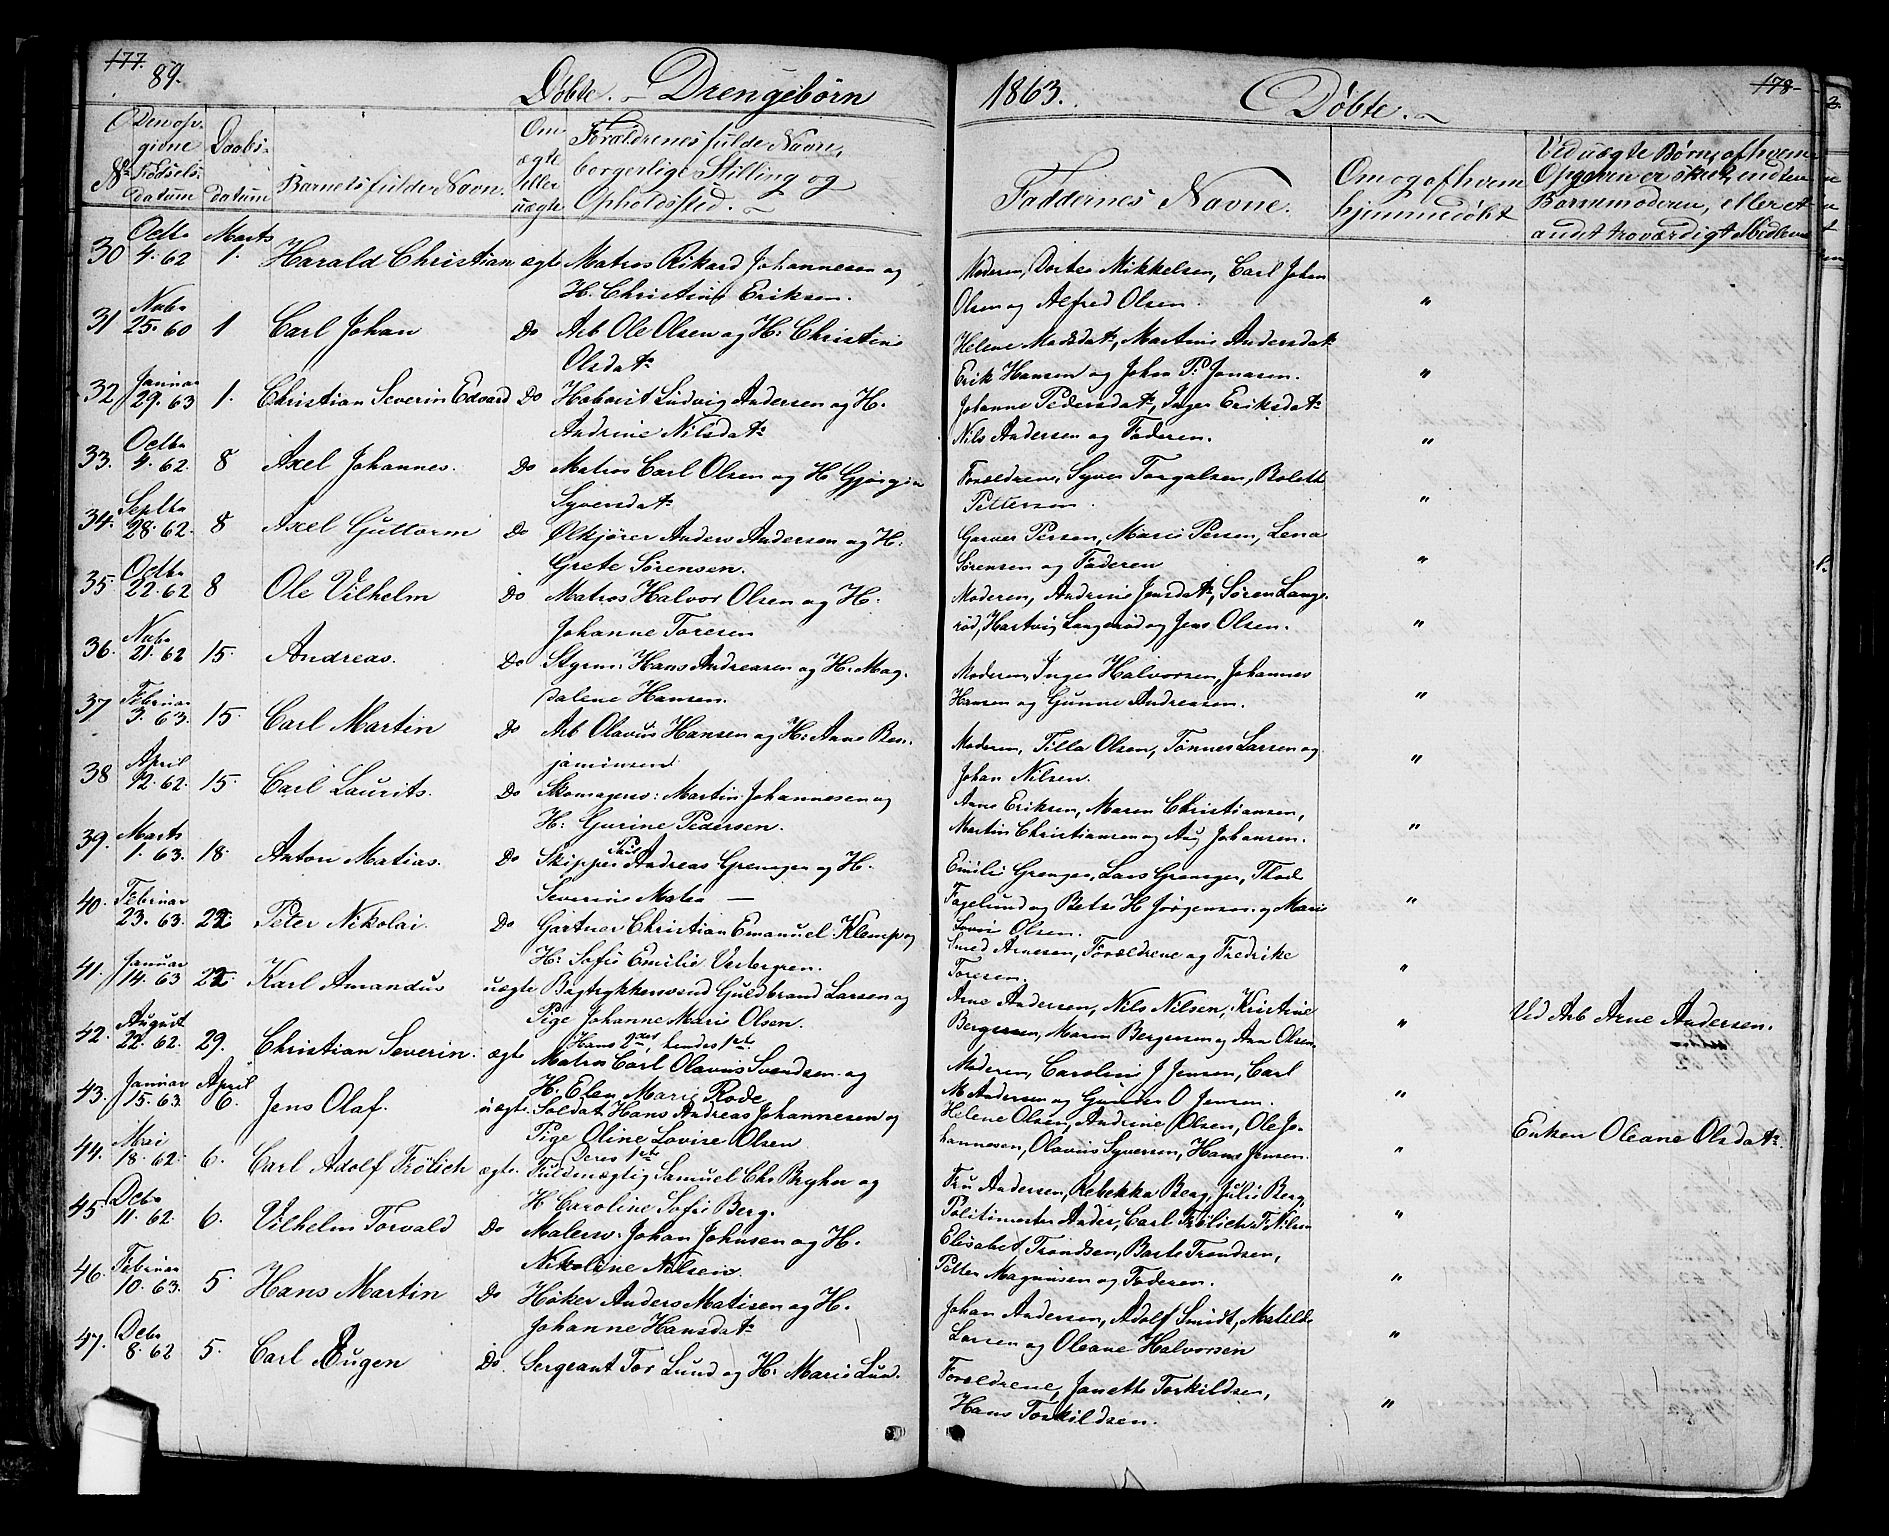 177. 89. Döbte. Drengebörn
Den opgivne Födsels datum
Daabsdatum
No
Barnets fulde Navn.
Om ægte eller uægte
Forældrenes fulde Navne, borgerlige Stilling og Opholdssted.
30 Octbr 4. 62 Marts 1. Harald Christian ægte Matros Rikard Johannesen og
H. Christine Eriksen.
31 Novbr 25. 60 1 Carl Johan Do Arb Ole Olsen og H: Christine
Olsdatr
32 Januar 29. 63 1. Christian Severin Edvard Do Ludvig Andersen og H.
Andrine Nilsdatr
33. Octbr 4. 62. 8 Axel Johannes. Do Matros Carl Olsen og H.
Syversdatr
34. Septbr 28. 62. 8 Axel Guttorm Do Ølkjører Anders Andersen og H:
Grete Sörensen.
35. Octbr 22. 62 8 Ole Vilhelm Do Matros Halvor Olsen og H:
Johanne Toresen
36. Novbr 21. 62 15. Andreas. Do Styrm: Hans Andreasen og H: Mag-
dalene Hansen.
37 Februar 3. 63. 15. Carl Martin Do Arb Olavus Hansen og H: Anne Ben-
jaminsen
38 April 12. 62. 15. Carl Laurits. Do Skomagersv: Martin Johannesen og
H: Gurine Pedersen.
39. Marts 1. 63. 18. Anton Matias. Do Skipper Poul Andreas Grønger og H.
Severine
40. Februar 23. 63. 22. Peter Nikolai. Do Gartner Christian Emanuel Klemp og
H: Sofie Emilie Vestergren.
41. Januar 14. 63 22 Karl Amandus uægte Bogtrykkersvend Guldbrand Larsen og
Pige Johanne Marie Olsen.
Hans 2det, hendes 1ste.
42. August 22. 62. 29. Christian Severin. ægte Matros Carl Olavus Svendsen og
H. Elen Marie Rode
43. Januar 15. 63. April 6. Jens Olaf. uægte. Soldat Hans Andreas Johannesen og
Pige Oline Lovise Olsen
Deres 1ste
44. Mai 18. 62. 6. Carl Adolf Frölich ægte. Fuldmægtig Samuel Chr Bryker og
H. Caroline Sofie Berg.
45. Decbr 11. 62. 6. Vilhelm Torvald Do Malersv: Johan Johnsen og H.
Nikoline Nilsen.
46. Februar 10. 63. 5. Hans Martin Do Höker Anders Matisen og H.
Johanne Hansdatr
47. Decbr 8. 62 5. Carl Eugen Do. Sergeant Tor Lund og H: Marie Lund.
1863. Döbte. 178
Faddernes Navne.
Om og af hvem hjemmedöbt
Ved uægte Börn, af hvem Opgaven er skeet, enten Barnemoderen, eller et andet troværdigt Vidne
Moderen, Dortea Mikkelsen, Carl Johan
Olsen og Alfred Olsen. "
Helene Madsdatr, Martine Andersdatr
Erik Hansen og Johan P. Jonasen. "
Johanne Pedersdatr, Inger Eriksdatr
Nils Andersen og Faderen. "
Forældrene, Syver Torgalsen, Bolette
Pettersen. "
Garver Persen, Marie Persen, Lena
Sörensen og Faderen "
Moderen, Andrine Jensdatr, Sören Lange-
röd, Hartvig Langeröd og Jens Olsen. "
Moderen, Inger Halvorsen, Johannes
Hansen og Gunne Andreasen. "
Moderen, Tilla Olsen, Tönnes Larsen og
Johan Nilsen. "
Anne Eriksen, Maren Christiansen,
Martin Christiansen og Aug Johansen. "
Emilie Grønger, Lars Grønger, Thode
Fagelund og Betse H Jörgensen og Marie
Olsen. "
Smed Arnesen, Forældrene og Fredrike
Toresen. "
Arne Andersen, Nils Nilsen, Kristine
Bergersen, Maren Bergersen og Ane Olsen. " Ved Arb Arne Andersen.
Moderen, Caroline J Jensen, Carl
M Andersen og Gunder O Jensen. "
Helene Olsen, Andrine Olsen, Ole Jo-
hannesen, Olavus Syversen, Hans Jensen. " Enken Oleane Olsdatr
Fru Andersen, Rebekka Berg, Julie Berg,
Politimester Ander, Carl Frölich F Nilsen "
Elisabet Trondsen, Barte Trondsen,
Petter Magnusen og Faderen. "
Johan Andersen, Adolf Smidt, Matilde
Larsen og Oleane Halvorsen "
Forældrene, Janette Torkildsen,
Hans Torkildsen. "